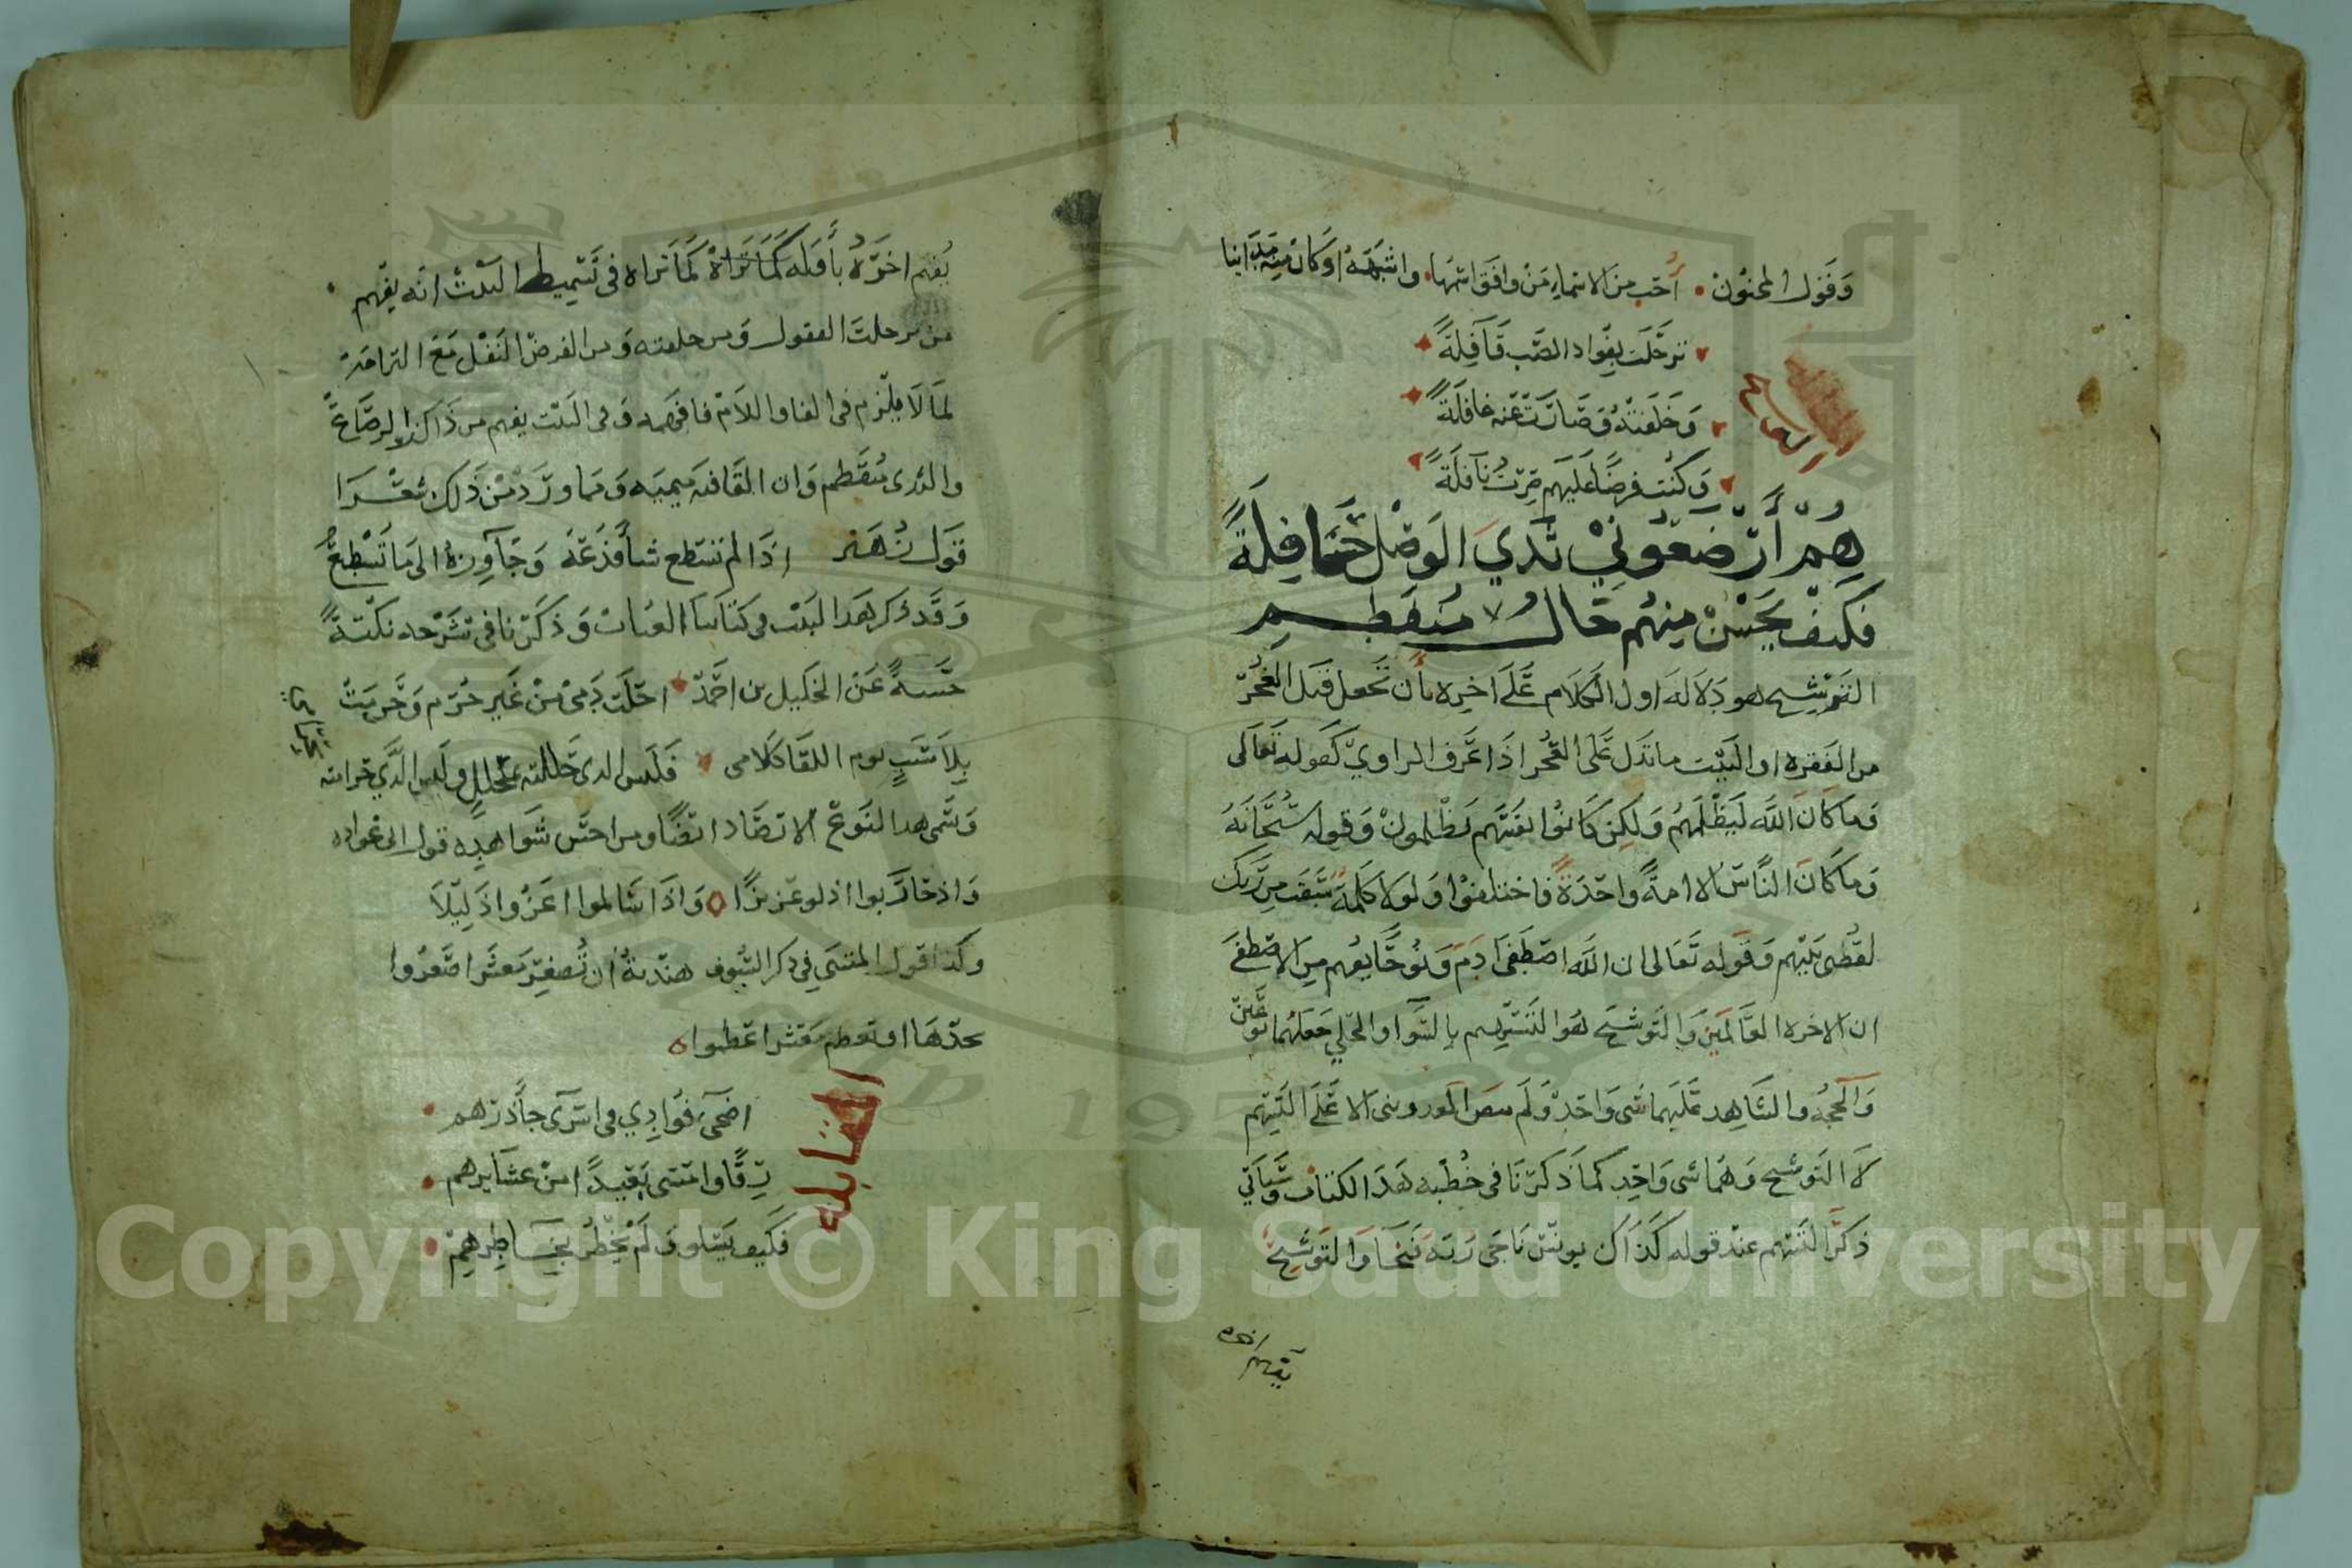 وَقَول المجنون • أحب من الاسماء من وافق اسمها • واشبهه او كان منه مدانيا
ترحلت بفواد الصب قافلةً
وَخلفته وَصَارت عنه غافلةً
وَكنت فرضًا عليهم صرت نافلةً
هُمُ أرْضَعُوني ثدي الوَصْل حَافِلَةً
فكيف يحسن منهم حال منفطم
التوشيح هو دلالة اول الكلام على اخره بأن تجعل قبل العجز
من الفقره او البيت ما تدل على العجز اذا عرف الراوي كقوله تعالى
وما كان الله ليظلمهم ولكن كانوا انفسهم يظلمون وقوله سبحانه
وما كان الناس الا امةً واحدةً فاختلفوا ولولا كلمة سبقت من ربك
لقضي بينهم وقوله تعالى ان الله اصطفى ادم ونوحًا يفهم من الاصطفى
ان الاخره العالمين والتوشيح هو التسهيم بالسوا والحلي جعلهما نوعين
والحجه والشاهد عليهما شي واحد ولم ينص الا على التسهيم
لا التوشيح وهما شي واحد كما ذكرنا في خطبه هذا الكتاب وسياتي
ذكر التسهيم عند قوله كذاك يونس ناجى ربه فنجا والتوشيح
يفهم اخره بأوله كما تراه كما تراه في تسميط البيت انه يفهم
من ترحلت القفول ومن خلفته ومن الفرض النفل مع التزامه
لما لا يلزم في الفا واللام فافهمه وفي البيت يفهم من ذكر الرضاعة
والثدي منفطم وان القافيه ميميه ومما ورد من ذلك شعرا
قول اذا لم تستطع شيأ فدعه وجاوزه الى ما تستطيع
وقد ذكر هذا البيت في كتابنا وذكرنا في شرحه نكتةً
حسنةً عن الخليل بن احمد احلت دمي من غير جرم وحرمت
بلا سبب يوم اللقا كلامي فليس الذي حللته بمحلل وليس الذي حرمته
وسمي هذا النوع الارصاد ايضًا ومن احسن شواهده قول ابي عباده
واذ حاربوا اذلو عزيزًا واذا سالموا اعزوا ذليلا
وكذا قول المتنبي في ذكر السيوف هنديةٌ ان تصغر معشرا صغروا
بحدها او تعظم معشرا عظموا
المقابله
اضحى فوادي في اسرى جأذرهم
رقًا وامسى بعيدًا من عشايرهم
فكيف يسلو ولم يخطر بخاطرهم